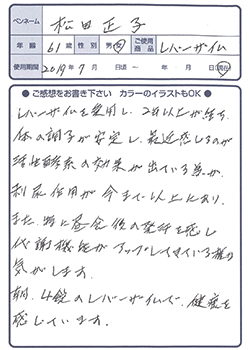 ペンネーム 松田正子
年齢 61才 性別 男・女 ご使用商品 レバーザイム
使用期間 2019年7月 日頃 ~ 年 月 日頃 現在
●ご感想をお書き下さい カラーのイラストもOK●
レバーザイムを愛用し、2年以上が経ち、
体の調子が安定し、最近感じるのが
活性酵素の効果が出ている為か、
利尿作用が今まで以上にあり、
また、特に昼食後の発汗を感じ
代謝機能がアップしてきている様な
気がします。
朝、4錠のレバーザイムで、健康を
感じています。